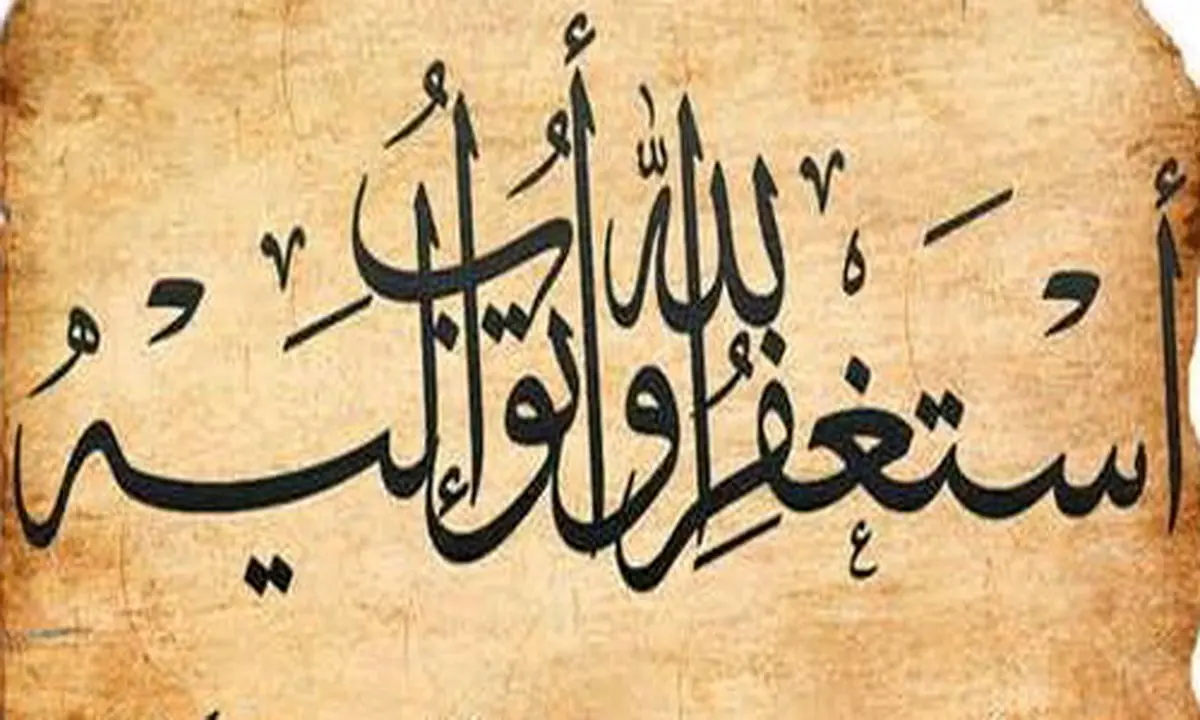 أَسْتَغْفِرُ اللّٰهَ وَأَتُوبُ إِلَيْهِ